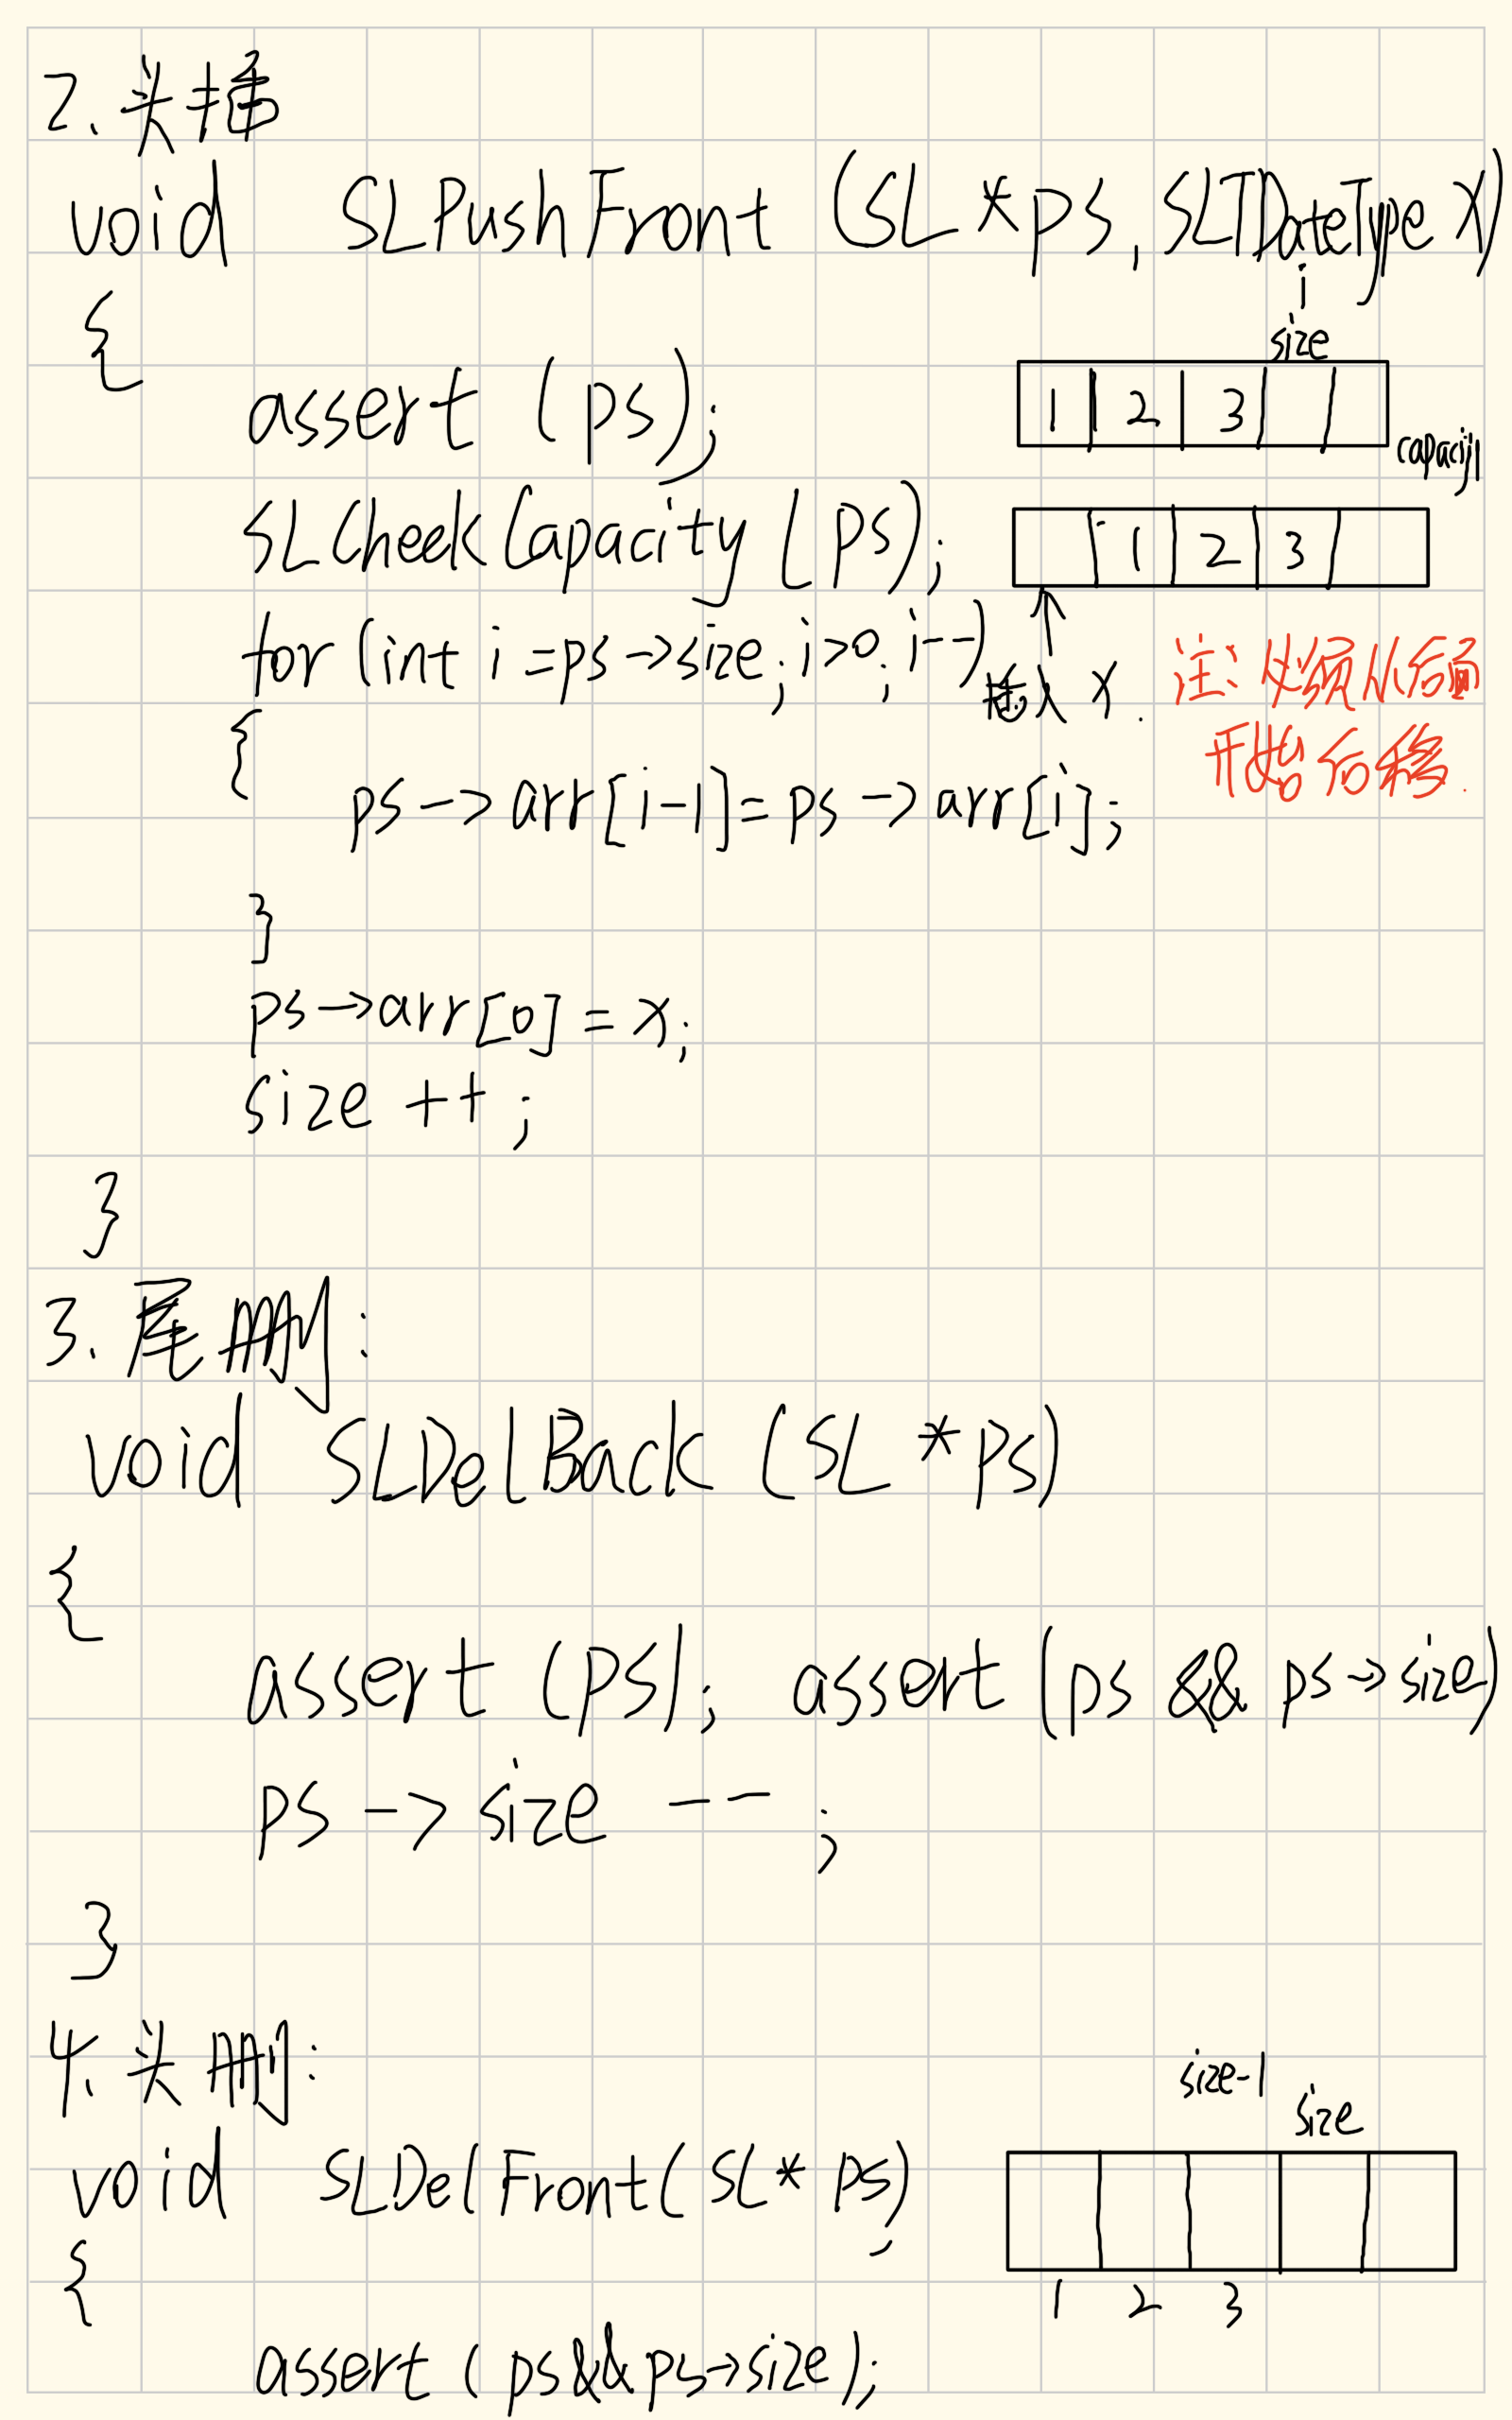 2.头插
void SLPushFront (SL *ps, SLTDateType x)
{
i
size
assert (ps);
1 2 3
capacity
SLCheekCapacity (ps);
1 2 3
for (int i = ps->size; i>0; i--)
插入 x.
注:必须从后面
开始后移.
{
ps -> arr[i-1] = ps -> arr[i];
}
ps->arr[0] = x;
size ++;
}
3.尾删:
void SLDelBack (SL *ps)
{
assert (ps); assert (ps && ps->size)
ps -> size -- ;
}
4、头删:
size-1
size
void SLDelFront( SL* ps)
1 2 3
{
assert ( ps&&ps->size);